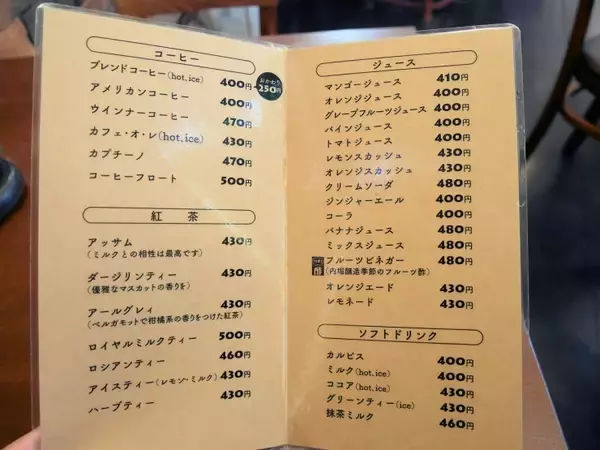 コーヒー
ブレンドコーヒー(hot,ice) 400円
おかわり 250円
アメリカンコーヒー 400円
ウインナーコーヒー 470円
カフェ・オ・レ(hot,ice) 430円
カプチーノ 470円
コーヒーフロート 500円
紅茶
アッサム 430円
(ミルクとの相性は最高です)
ダージリンティー 430円
(優雅なマスカットの香りを)
アールグレィ 430円
(ベルガモットで柑橘系の香りをつけた紅茶)
ロイヤルミルクティー 500円
ロシアンティー 460円
アイスティー(レモン・ミルク) 430円
ハーブティー 430円
ジュース
マンゴージュース 410円
オレンジジュース 400円
グレープフルーツジュース 400円
パインジュース 400円
トマトジュース 400円
レモンスカッシュ 430円
オレンジスカッシュ 430円
クリームソーダ 480円
ジンジャーエール 400円
コーラ 400円
バナナジュース 480円
ミックスジュース 480円
フルーツビネガー 480円
(内堀醸造季節のフルーツ酢)
オレンジエード 430円
レモネード 430円
ソフトドリンク
カルピス 400円
ミルク(hot,ice) 400円
ココア(hot,ice) 430円
グリーンティー(ice) 430円
抹茶ミルク 460円